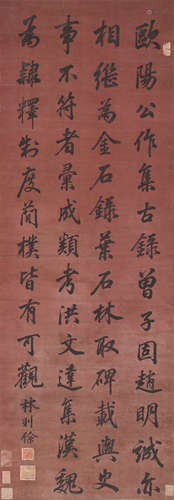 歐陽公作集古錄曾子固趙明誠亦
相繼為金石錄葉石林取碑載與史
事不符者彙成類考洪文達集漢魏
為隸釋制度簡樸皆有可觀
林則徐